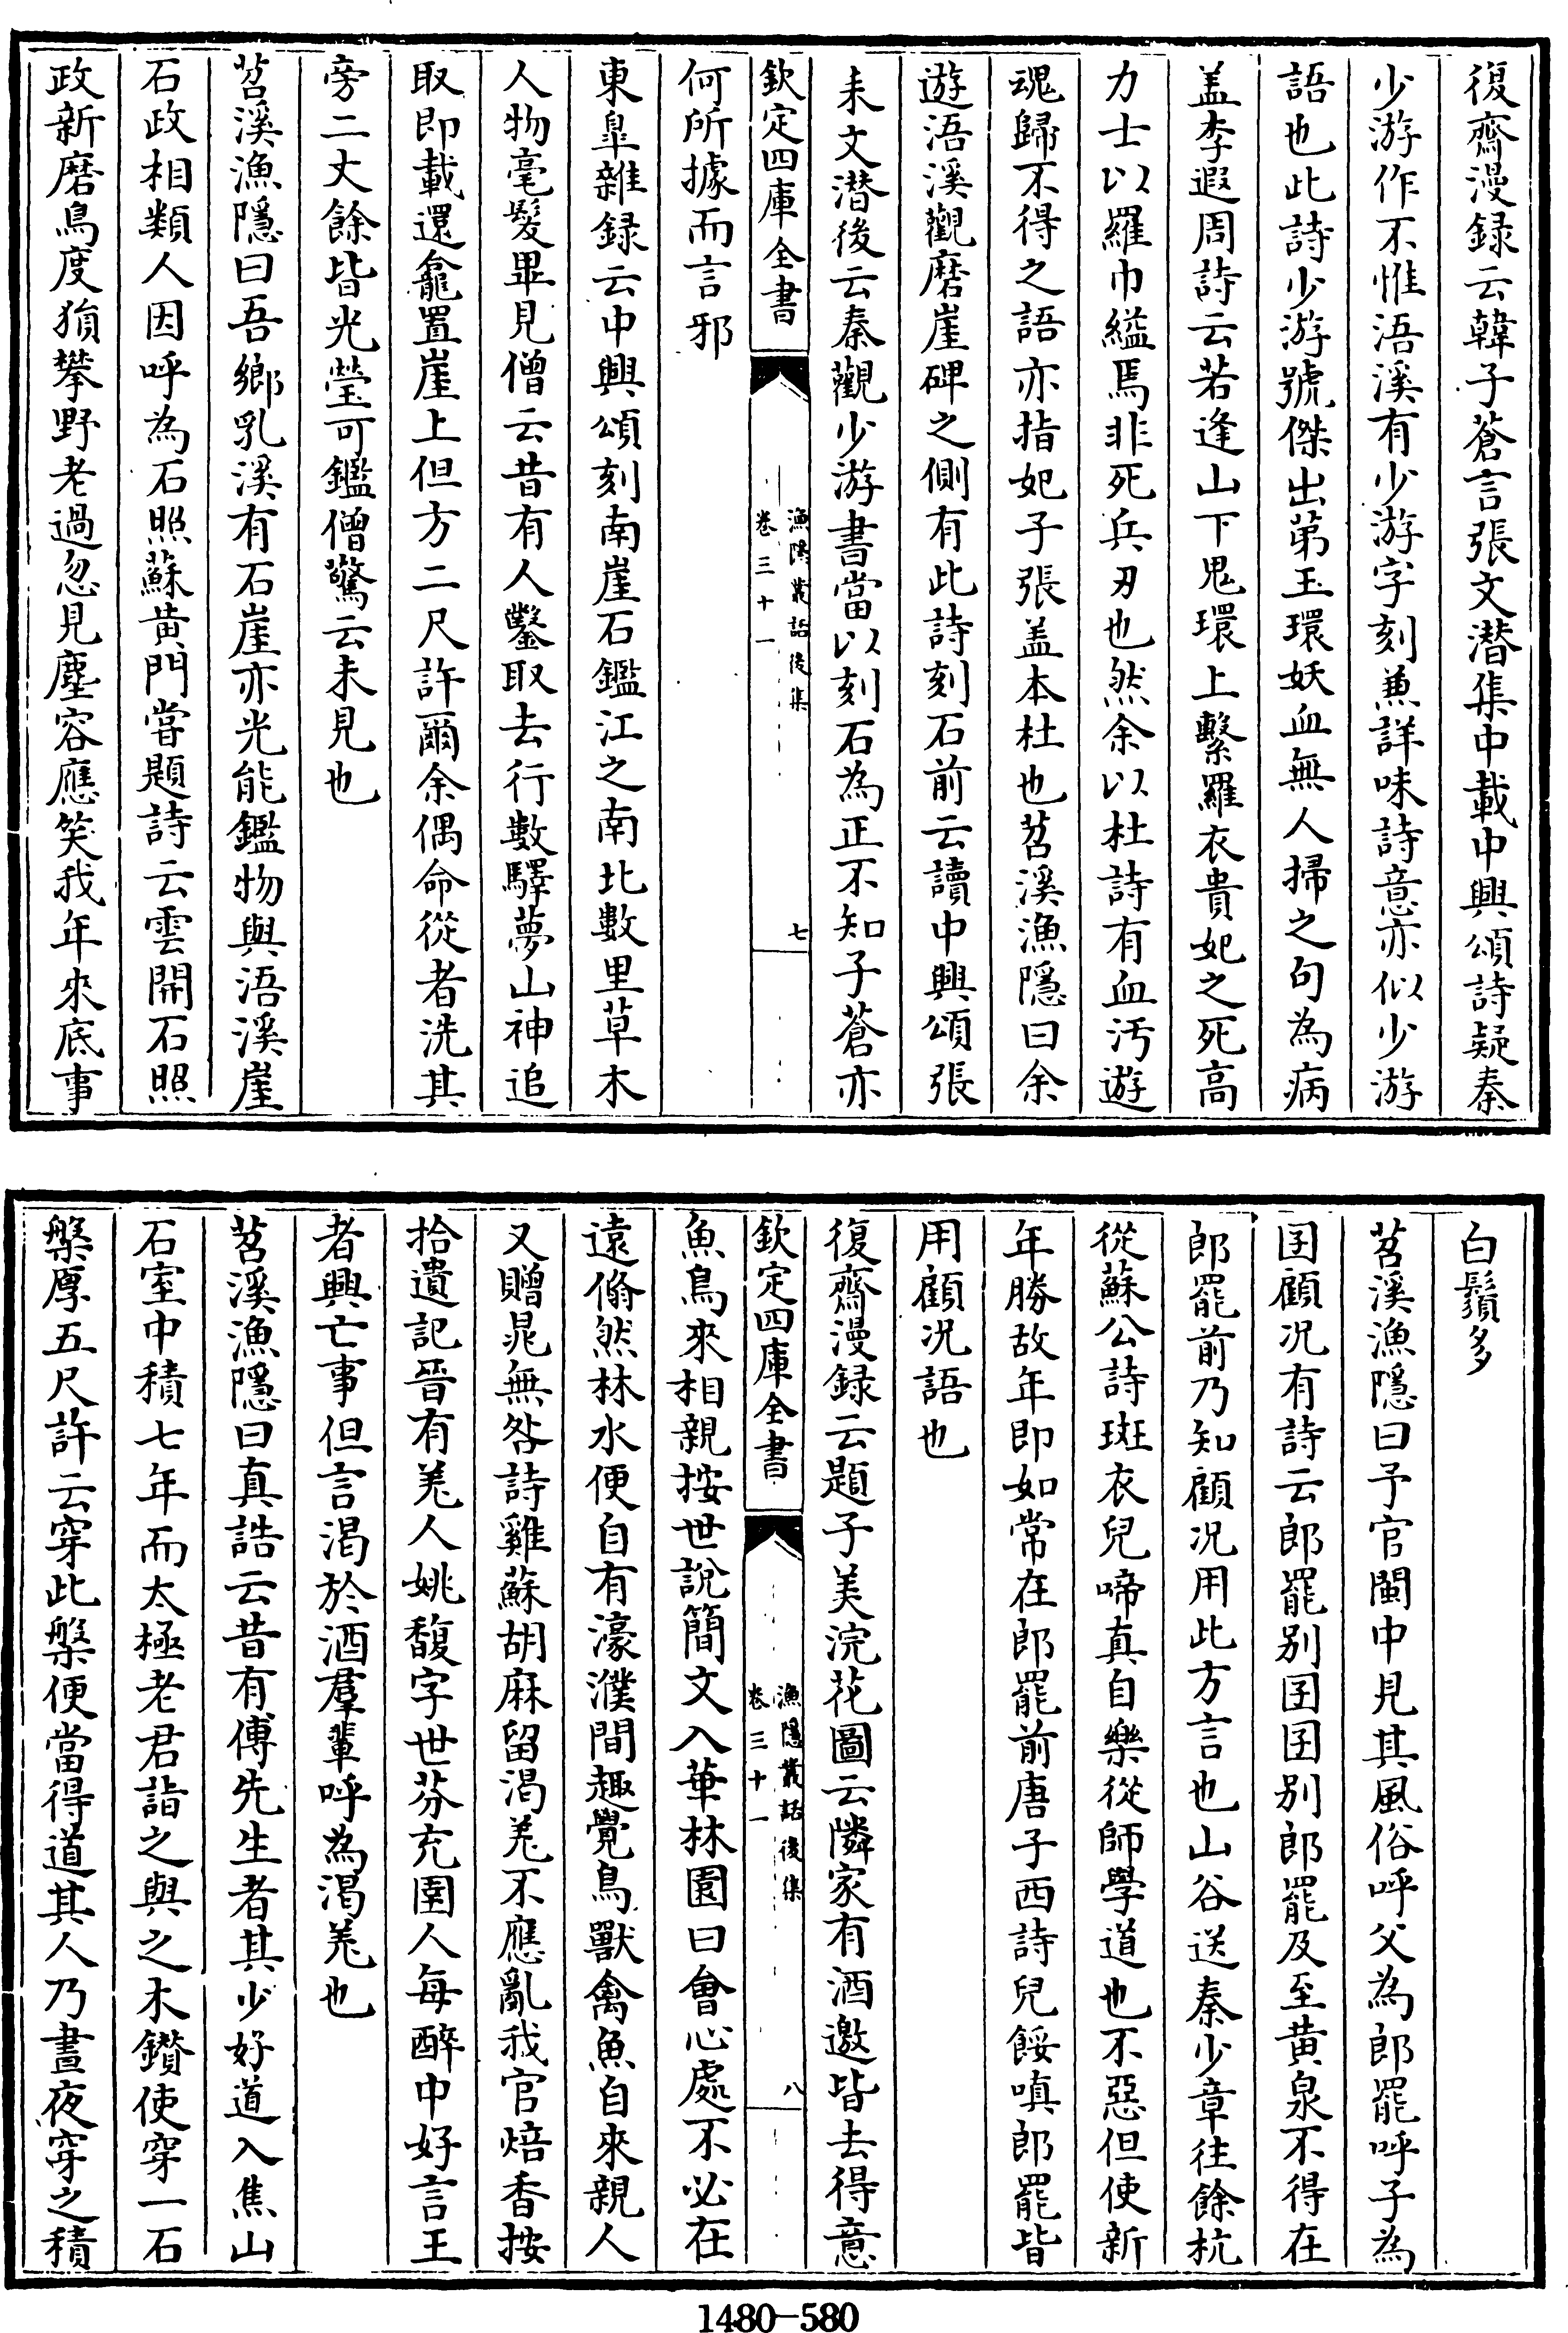 復齋漫録云韓子蒼言張文潛集中載中興頌詩疑秦
少游作不惟浯溪有少游字刻兼詳味詩意亦似少游
語也此詩少游號傑出第玉環妖血無人掃之句為病
盖李遐周詩云若逢山下鬼環上繫羅衣貴妃之死高
力士以羅巾縊焉非死兵刃也然余以杜詩有血汚遊
魂歸不得之語亦指妃子張盖本杜也苕溪漁隱曰余
遊浯溪觀磨崖碑之側有此詩刻石前云讀中興頌張
耒文潛後云秦觀少游書當以刻石為正不知子蒼亦
欽定四庫全書
漁隱叢話後集
卷三十一
七
何所據而言邪
東臯雜録云中興頌刻南崖石鑑江之南北數里草木
人物毫髮畢見僧云昔有人鑿取去行數驛夢山神追
取即載還龕置崖上但方二尺許爾余偶命從者洗其
旁二丈餘皆光瑩可鑑僧驚云未見也
苕溪漁隱曰吾鄉乳溪有石崖亦光能鑑物與浯溪崖
石政相類人因呼為石照蘇黄門嘗題詩云雲開石照
政新磨鳥度猿攀野老過忽見塵容應笑我年來底事
白鬚多
苕溪漁隱曰予官閩中見其風俗呼父為郎罷呼子為
囝顧况有詩云郎罷别囝囝别郎罷及至黄泉不得在
郎罷前乃知顧况用此方言也山谷送秦少章往餘杭
從蘇公詩斑衣兒啼真自樂從師學道也不惡但使新
年勝故年即如常在郎罷前唐子西詩兒餒嗔郎罷皆
用顧况語也
復齋漫録云題子美浣花圖云隣家有酒邀皆去得意
欽定四庫全書
漁隱叢話後集
卷三十一
八
魚鳥來相親按世說簡文入華林園曰會心處不必在
遠翛然林水便自有濠濮間趣覺鳥獸禽魚自來親人
又贈晁無咎詩雞蘇胡麻留渴羌不應亂我官焙香按
拾遺記晉有羌人姚馥字世芬充圉人每醉中好言王
者興亡事但言渴於酒羣輩呼為渴羌也
苕溪漁隱曰真誥云昔有傅先生者其少好道入焦山
石室中積七年而太極老君詣之與之木鑚使穿一石
槃厚五尺許云穿此槃便當得道其人乃晝夜穿之積
1480-580